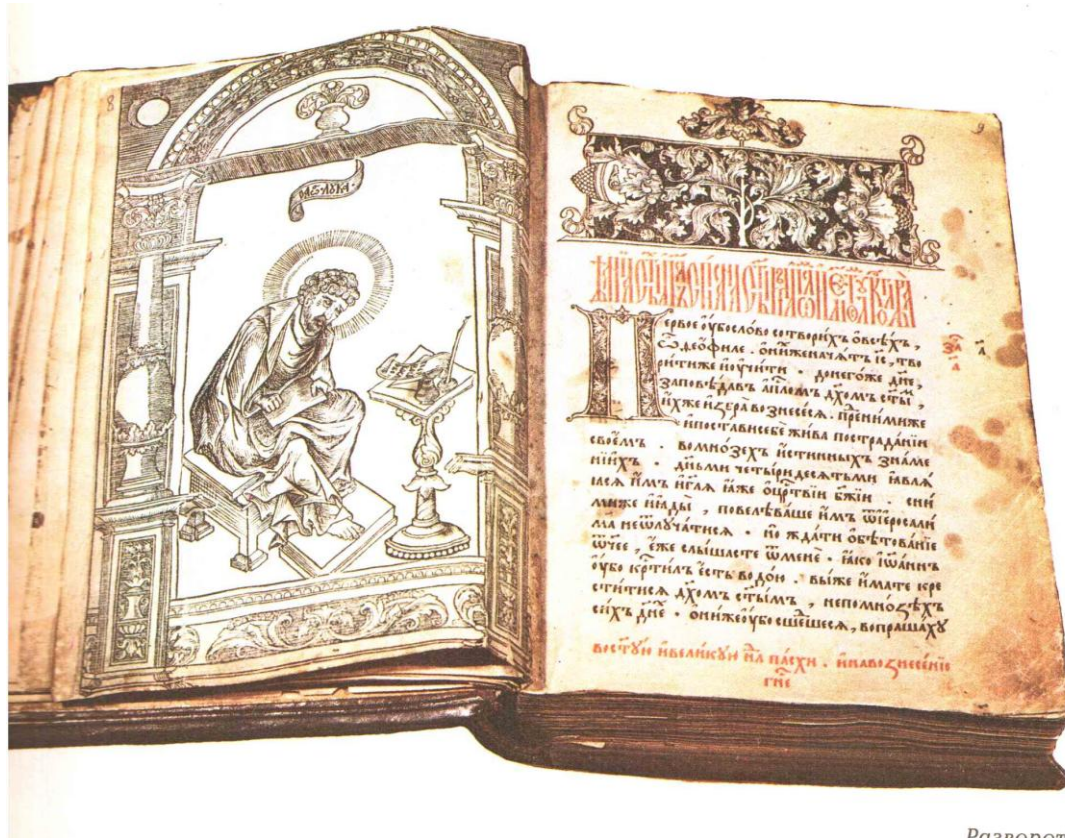 8
9
Первое оубо слово сотворихъ ѡвсѣхъ,
ѽ деоѳиле. онихже начатъ іс, тво
ритиже иоучити. донегоже дн҃е,
заповѣдавъ апⷭ҇ломъ дх҃омъ ст҃ыⷨ,
ихже избра вознесесѧ. преднимиже
ипостави себе жива пострадании
своемъ. вомнозехъ истинныхъ знаме
ниихъ. дньми четыридесѧтьми ꙗвлѧ
ꙗсѧ имъ игл҃ѧ ꙗже оцрⷭ҇твіи бж҃іи. сни
миже иꙗды, повелѣваше имъ ѿіеросали
ма неѿлучатисѧ. но ждати обѣтованіе
ѿчее, еже слышасте ѿмене. ꙗко іѡаннъ
оубо крⷭ҇тилъ есть водою. выже имате кре
ститисѧ дх҃омъ ст҃ымъ, непомнозѣхъ
сихъ дн҃е. онижеоубо сшедшесѧ, вопрашахꙋ
востꙋю ивеликꙋю нл҃ѧ пасхи. инавознесеніе
гн҃е
Разворот